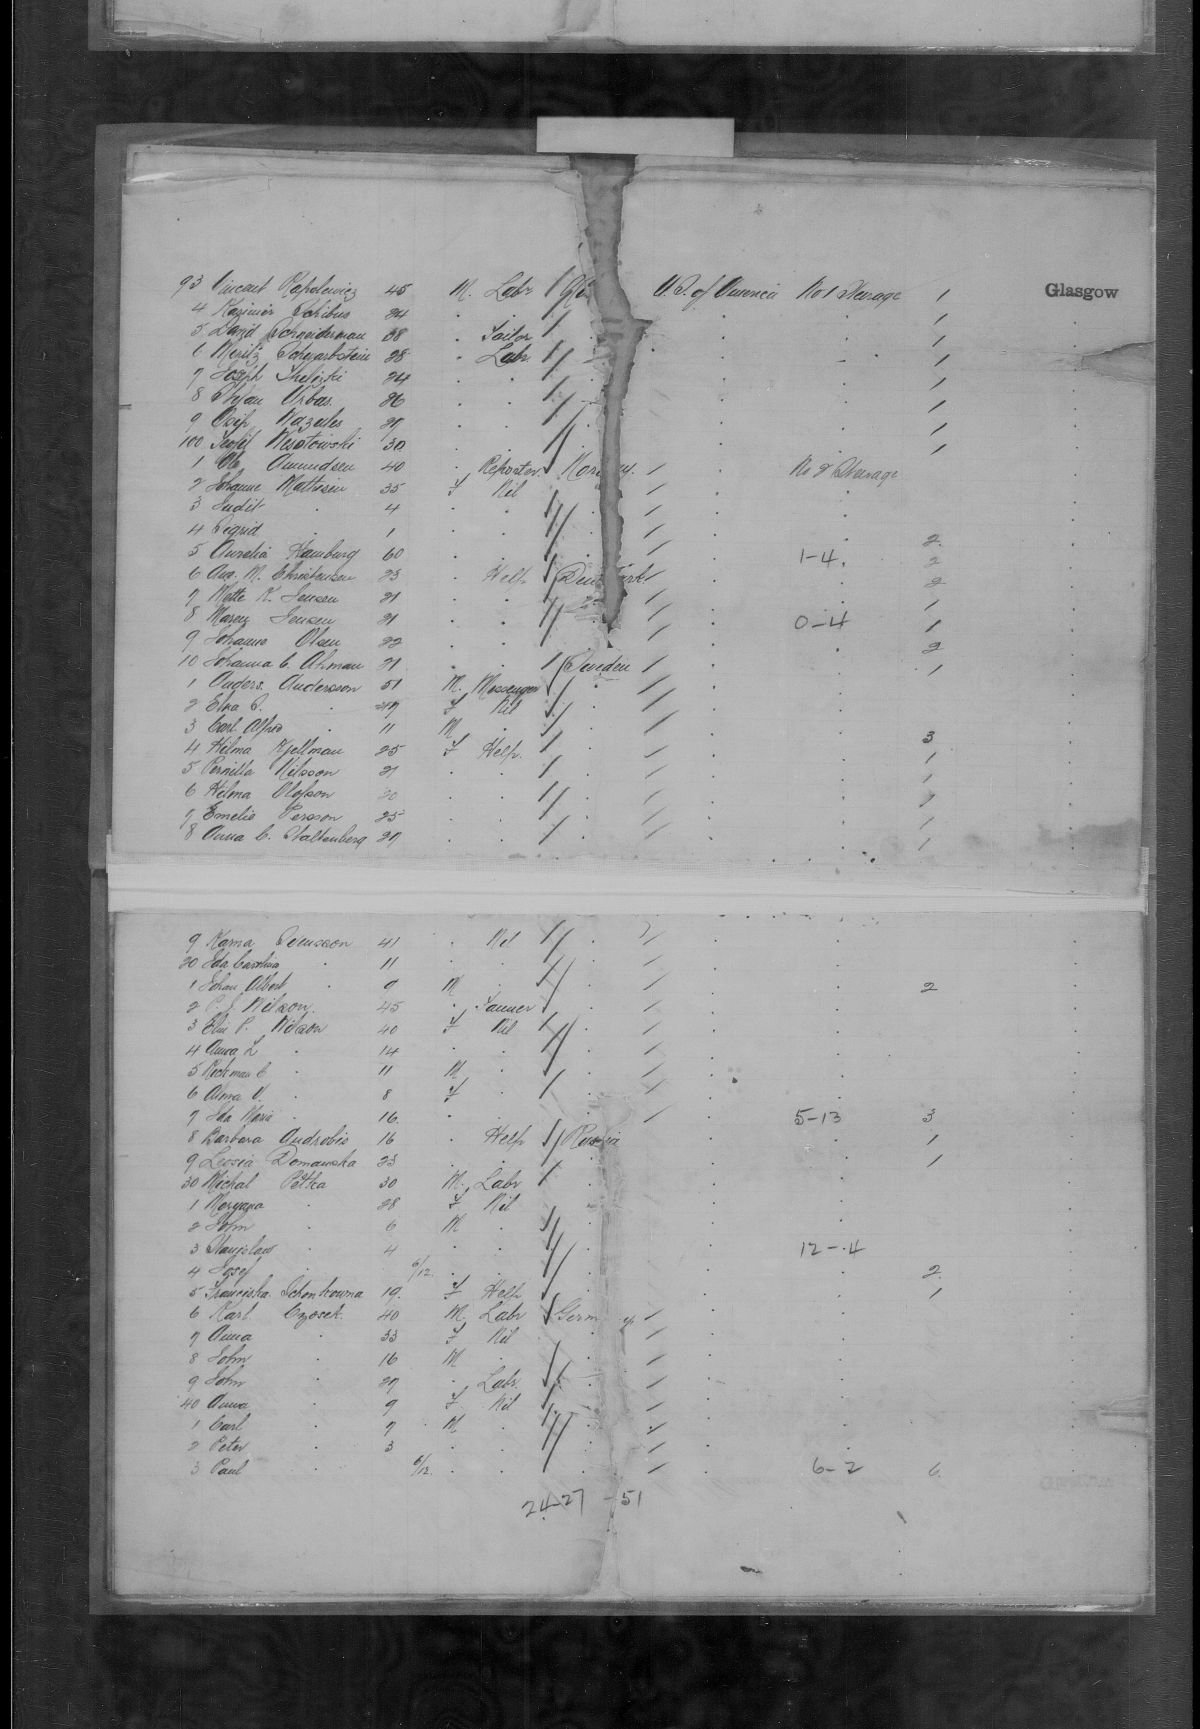 93 Vincent Rapolewicz 45 M. Labr U.S. of America No 1 Steerage 1 Glasgow
4 Kazimir Schibus 24 1
5 David Schneiderman 38 Tailor 1
6 Moritz 28 Labr. 1
7 Joseph 24 1
8 Stefan Urbas 26 1
9 Osip 1
100 30 1
1 Ole Amundsen 40 Reporter. No 2 Steerage
2 Johanne Mathisen 35 F Nil
3 Judit 4
4 Sigrid 1 2
5 Aurelia Hamburg 60 1-4. 2
6 M. Christensen 23 Help Denmark 2
7 Mette K. Jensen 21 1
8 Maren Jensen 21 0-4 1
9 Johanne Olsen 22 2
10 Johanna C. 21 Sweden 1
1 Anders. Andersson 51 M. Messenger
2 Elna F Nil
3 Carl Alfred 11 M 3
4 Hilma Kjellman 25 F Help. 1
5 Pernilla Nilsson 21 1
6 Hilma Olofson 20 1
7 Emelie Persson 25 1
8 Anna C. Staltenberg 1
9 Karna Svensson 41 Nil
20 Ida Carolina 11
1 Johan Albert 9 M 2
2 Nilson. 45 Tanner
3 P. Nilson 40 F Nil
4 Anna L 14
5 11 M
6 Alma V. 8 F
7 Ida Maria 16. 5-13 3
8 Barbara Androbis 16 Help Russia 1
9 Domanska 23 1
30 Michal Petka 30 M. Labr
1 28 F Nil
2 John 6 M
3 Stanislaw 4 12-4
4 Josef 6/12. 2
5 Franciska 19. F Help 1
6 Karl 40 M Labr Germ y
7 Anna 33 F Nil
8 John 16 M
9 John Labr.
40 Anna 9 F Nil
1 Carl 7 M
2 Peter 3
3 Paul 6/12. 6-2 6.
24-27 - 51